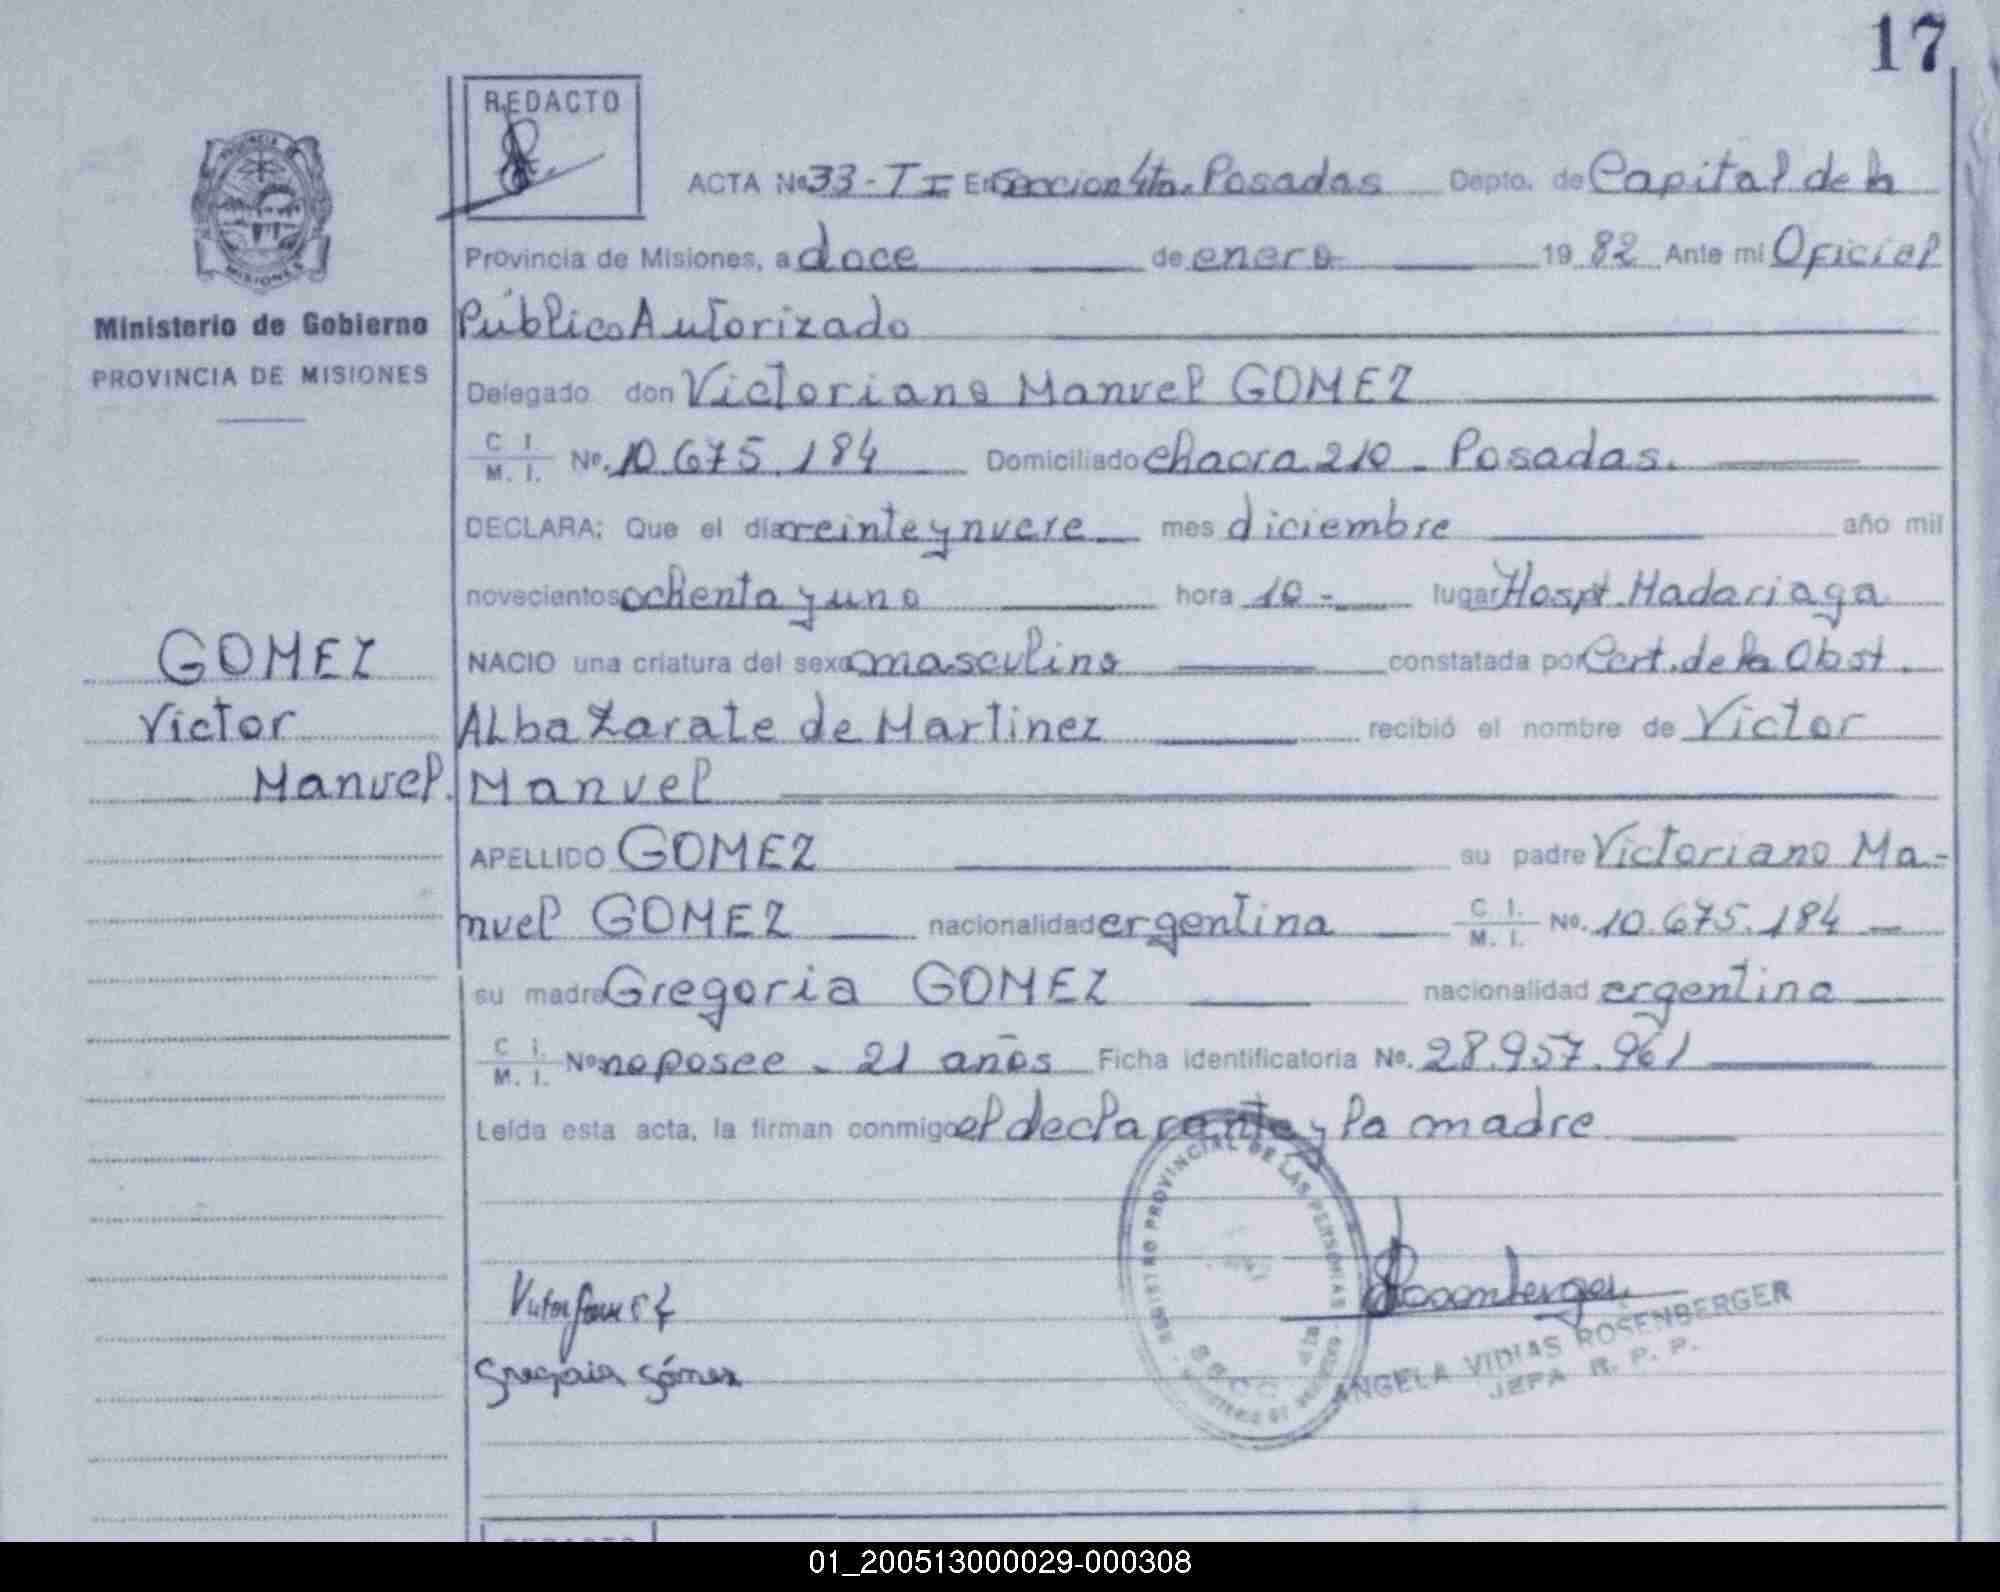 17
REDACTO
PROVINCIA DE
MISIONES
Ministerio de Gobierno
PROVINCIA DE MISIONES
ACTA No 33 - T I En Seccion 4ta. Posadas Depto. de Capital de la
Provincia de Misiones, a doce de enero 19 82 Ante mi Oficial
Público Autorizado
Delegado don Victoriano Manuel GOMEZ
C. I. / M. I. No. 10.675.184 Domiciliado chacra 210 - Posadas.
DECLARA: Que el día veinte y nueve mes diciembre año mil
novecientos ochenta y uno hora 10 - lugar Hospt. Madariaga
GOMEZ
NACIO una criatura del sexo masculino constatada por Cert. de la Obst.
Victor
ALba Zarate de Martinez recibió el nombre de Victor
Manuel.
Manuel
APELLIDO GOMEZ su padre Victoriano Ma-
nuel GOMEZ nacionalidad argentina C. I. / M. I. No. 10.675.184 -
su madre Gregoria GOMEZ nacionalidad argentina
C. I. / M. I. No no posee - 21 años Ficha identificatoria No. 28.957.961
Leída esta acta, la firman conmigo el declarante y la madre
REGISTRO PROVINCIAL DE LAS PERSONAS
Gregoria Gómez
ANGELA VIDIAS ROSENBERGER
JEFA R. P. P.
01_200513000029-000308